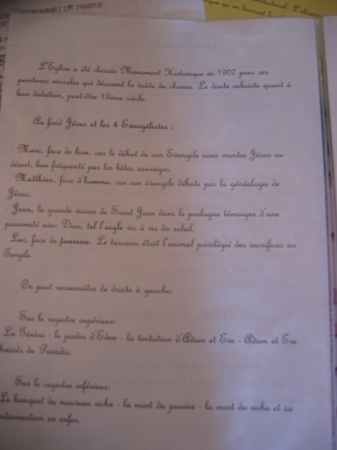 L'Eglise a été classée Monument Historique en 1907 pour ses
peintures murales qui décorent la voûte du choeur. Le doute subsiste quant à
leur datation, peut-être 12ème siècle.
Au fond Jésus et les 4 Evangélistes :
Marc, face de lion, car le début de son Evangile nous montre Jésus au
désert, lieu fréquenté par les bêtes sauvages.
Matthieu, face d'homme, car son évangile débute par la généalogie de
Jésus.
Jean, la grande vision de Saint Jean dans le prologue témoigne d'une
proximité avec Dieu, tel l'aigle vis à vis du soleil.
Luc, face de taureau. Le taureau était l'animal privilégié des sacrifices au
Temple.
On peut reconnaître de droite à gauche:
Sur le registre supérieur:
La Genèse - le jardin d'Eden - la tentation d'Adam et Eve - Adam et Eve
chassés du Paradis.
Sur le registre inférieur:
Le banquet du mauvais riche - la mort du pauvre - la mort du riche et sa
en enfer.